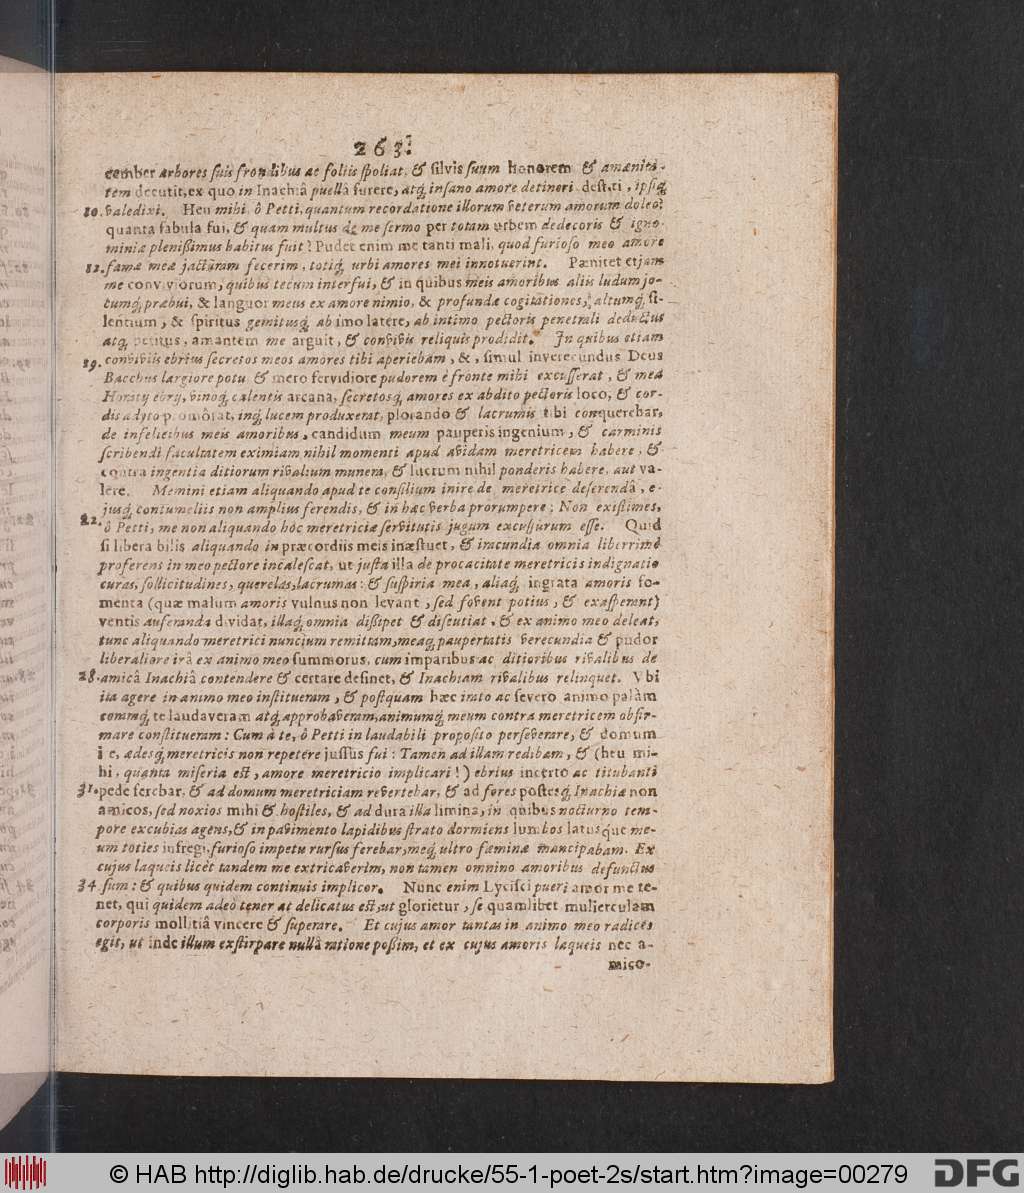 263.
cember arbores suis frondibus ac foliis spoliat, & silvis suum honorem & amænita-
tem decutit, ex quo in Inachiâ puellâ furere, atq; insano amore detineri destiti, ipsiq;
10. valedixi. Heu mihi, ô Petti, quantum recordatione illorum veterum amorum doleo!
quanta fabula fui, & quam multus de me sermo per totam urbem dedecoris & igno-
miniæ plenissimus habitus fuit! Pudet enim me tanti mali, quod furioso meo amore
12. famæ meæ jacturam fecerim, totiq; urbi amores mei innotuerint. Pænitet etjam
me conviviorum, quibus tecum interfui, & in quibus meis amoribus aliis ludum jo-
cumq; præbui, & languor meus ex amore nimio, & profundæ cogitationes, altumq; si-
lentium, & spiritus gemitusq; ab imo latere, ab intimo pectoris penetrali deductus
atq; petitus, amantem me arguit, & convivis reliquis prodidit. In quibus etiam
19. conviviis ebrius secretos meos amores tibi aperiebam, &, simul inverecundus Deus
Bacchus largiore potu & mero fervidiore pudorem è fronte mihi excusserat, & mea
Horatij ebrij, vinoq; calentis arcana, secretosq; amores ex abdito pectoris loco, & cor-
dis adyto promôrat, inq; lucem produxerat, plorando & lacrumis tibi conquerebar,
de infelicibus meis amoribus, candidum meum pauperis ingenium, & carminis
scribendi facultatem eximiam nihil momenti apud avidam meretricem habere, &
contra ingentia ditiorum rivalium munera, & lucrum nihil ponderis habere, aut va-
lere. Memini etiam aliquando apud te consilium inire de meretrice deserendâ, e-
jusq; contumeliis non amplius ferendis, & in hæc verba prorumpere; Non existimes,
22. ô Petti, me non aliquando hôc meretriciæ servitutis jugum excussurum esse. Quid
si libera bilis aliquando in præcordiis meis inæstuet, & iracundia omnia liberrimè
proferens in meo pectore incalescat, ut justa illa de procacitate meretricis indignatio
curas, sollicitudines, querelas, lacrumas: & suspiria mea, aliaq; ingrata amoris fo-
menta (quæ malum amoris vulnus non levant, sed fovent potius, & exasperant)
ventis auferanda dividat, illaq; omnia dissipet & discutiat, & ex animo meo deleat,
tunc aliquando meretrici nuncium remittam, meaq; paupertatis verecundia & pudor
liberaliore irâ ex animo meo summotus, cum imparibus ac ditioribus rivalibus de
28. amicâ Inachiâ contendere & certare desinet, & Inachiam rivalibus relinquet. Vbi
ita agere in animo meo institueram, & postquam hæc imto ac severo animo palàm
coramq; te laudaveram atq; approbaveram, animumq; meum contra meretricem obfir-
mare constitueram: Cum à te, ô Petti in laudabili proposito perseverare, & domum
i e, ædesq; meretricis non repetere jussus fui: Tamen ad illam redibam, & (heu mi-
hi, quanta miseria est, amore meretricio implicari!) ebrius incerto ac titubanti
31. pede ferebar, & ad domum meretriciam revertebar, & ad fores postesq; Inachiæ non
amicos, sed noxios mihi & hostiles, & ad dura illa limina, in quibus nocturno tem-
pore excubias agens, & in pavimento lapidibus strato dormiens lumbos latusque me-
um toties infregi, furioso impetu rursus ferebar, meq; ultro fæminæ mancipabam. Ex
cujus laqueis licèt tandem me extricaverim, non tamen omnino amoribus defunctus
34. sum: & quibus quidem continuis implicor. Nunc enim Lycisci pueri amor me te-
net, qui quidem adeò tener ac delicatus est, ut glorietur, se quamlibet mulierculam
corporis mollitiâ vincere & superare. Et cujus amor tantas in animo meo radices
egit, ut inde illum exstirpare nullâ ratione possim, et ex cujus amoris laqueis nec a-
mico-
© HAB http://diglib.hab.de/drucke/55-1-poet-2s/start.htm?image=00279
DFG